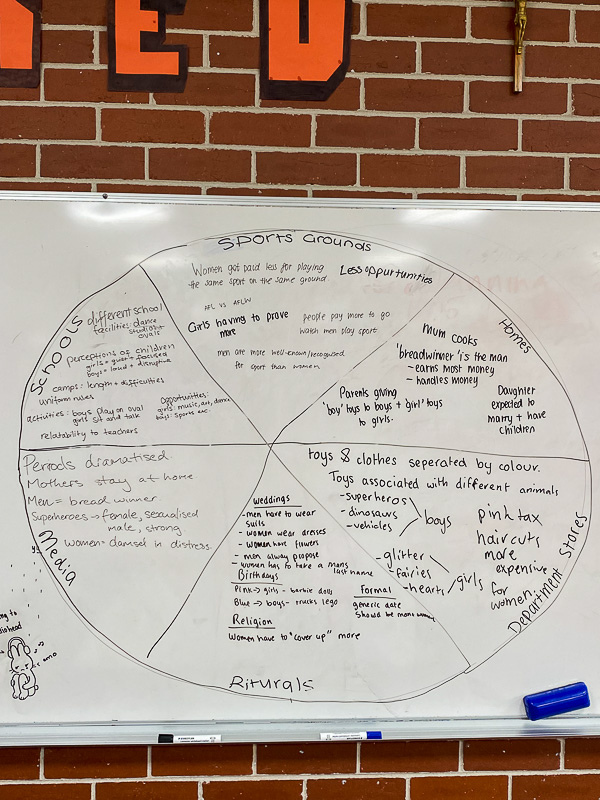 ED
Sports Grounds
Women got paid less for playing
the same sport on the same ground.
Less oppurtunities
AFL vs AFLW
Girls having to prove
more
people pay more to go
watch men play sport.
men are more well-known/recognised
for sport than women
Homes
Mum cooks
'breadwinner' is the man
- earns most money
- handles money
Parents giving
'boy' toys to boys + 'girl' toys
to girls.
Daughter
expected to
marry + have
children
Department Stores
toys & clothes seperated by colour.
Toys associated with different animals
- superheros
- dinosaurs
- vehicles
boys
- glitter
- fairies
- hearts
girls
pink tax
haircuts
more
expensive
for
women.
Riturals
Weddings
- men have to wear
suits
- women wear dresses
- women have flowers
- men alway propose
- women has to take a mans
last name
Birthdays
Pink → girls - barbie dolls
Blue → boys - trucks lego
Formal
generic date
Should be man + woman
Religion
Women have to "cover up" more
Media
Periods dramatised.
Mothers stay at home.
Men = bread winner.
Superheroes → female, sexualised
male, strong
women = damsel in distress.
Schools
different school
facilities: dance
studio vs
ovals
perceptions of children
girls = quiet + focused
boys = loud + disruptive
camps: length + difficulties
uniform rules
activities: boys play on oval
girls sit and talk
relatability to teachers
Opportunities:
girls: music, art, dance
boys: sports etc.